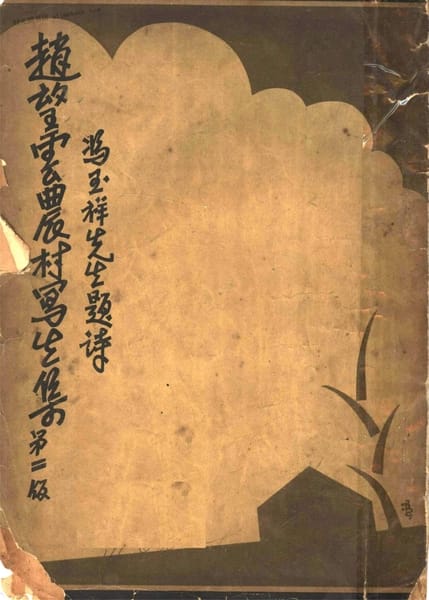 趙望雲農村寫生集 第二版
馮玉祥先生題詩